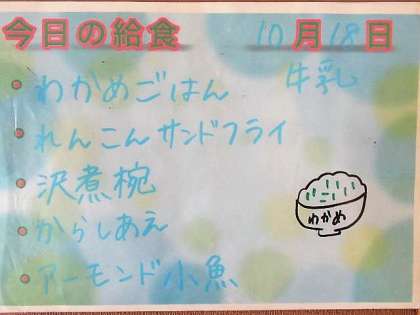 今日の給食 10月18日
わかめごはん 牛乳
れんこんサンドフライ
沢煮椀
からしあえ
アーモンド小魚
わかめ